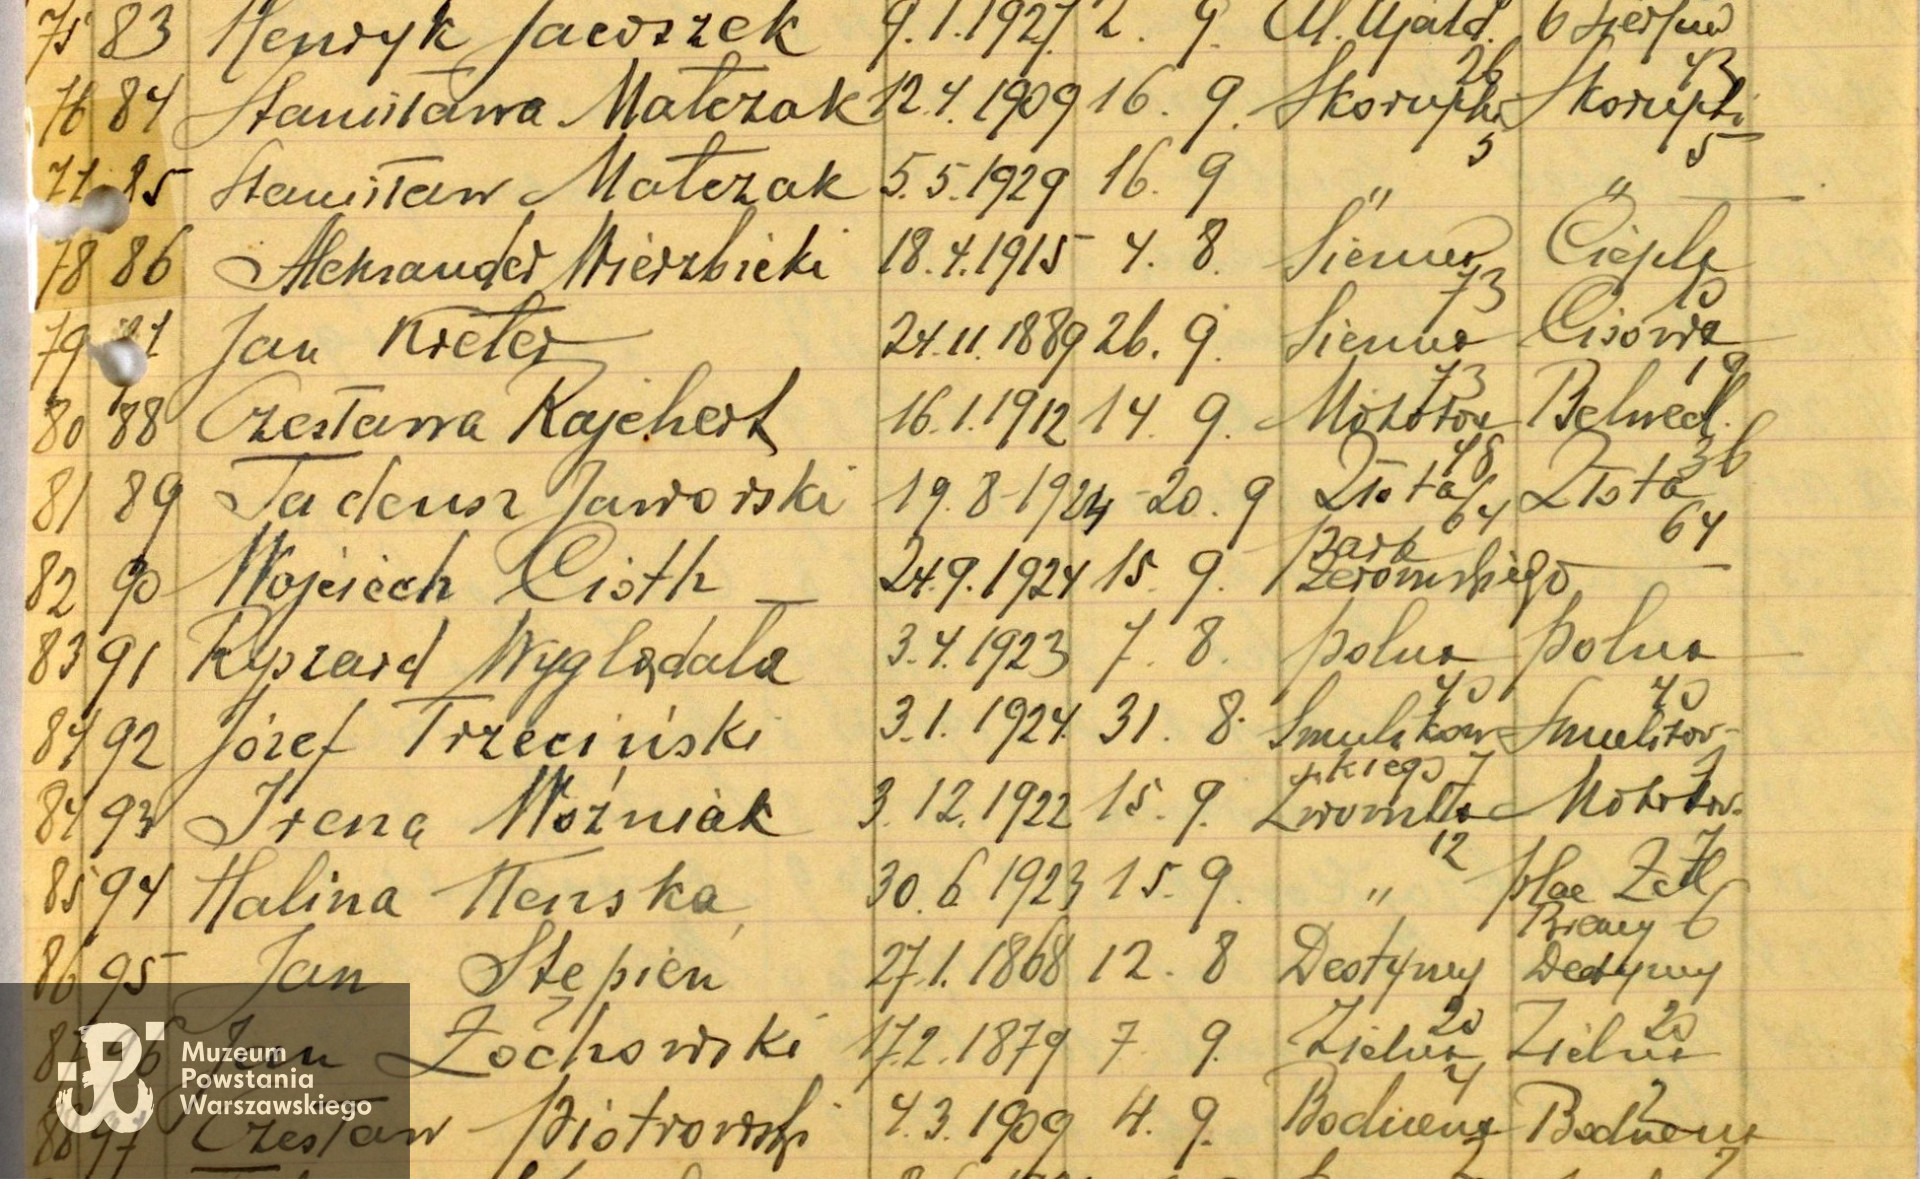 75 83 Henryk Jaroszek 9.1.1927 2. 9. Al. Ujazd. 6 Sierpnia
26 43
76 84 Stanisława Małczak 12.4.1909 16. 9. Skorupki Skorupki
5 5
77 85 Stanisław Małczak 5.5.1929 16. 9 " "
78 86 Aleksander Wierzbicki 18.4.1915 4. 8. Sienna Ciepła
73 10
79 87 Jan Kreter 24.11.1889 26. 9. Sienna Cisowa
73 19
80 88 Czesława Rajchert 16.1.1912 14. 9. Mokotow Belwed.
48 36
81 89 Tadeusz Jaworski 19.8-1924 -20. 9 Złota Złota
64 64
82 90 Wojciech Cioth 24.9.1924 15. 9. Park Żeromskiego —
83 91 Ryszard Wyglądała 3.4.1923 7. 8. Polna Polna
40 40
84 92 Józef Trzeciński 3.1.1924 31. 8. Smulikow- Smulikow-
skiego 7 7
84 93 Irena Woźniak 3.12.1922 15. 9. Mokotow.
12 7
85 94 Halina 30.6.1923 15. 9. " Plac Żel.
Bramy 6
86 95 Jan Stępień 27.1.1868 12. 8
20 20
87 96 Jan Żochowski 17.2.1879 7 9. Zielna Zielna
4
88 97 Czesław Piotrowski 4.3.1909 4. 9. Boduena Boduena
Muzeum
Powstania
Warszawskiego